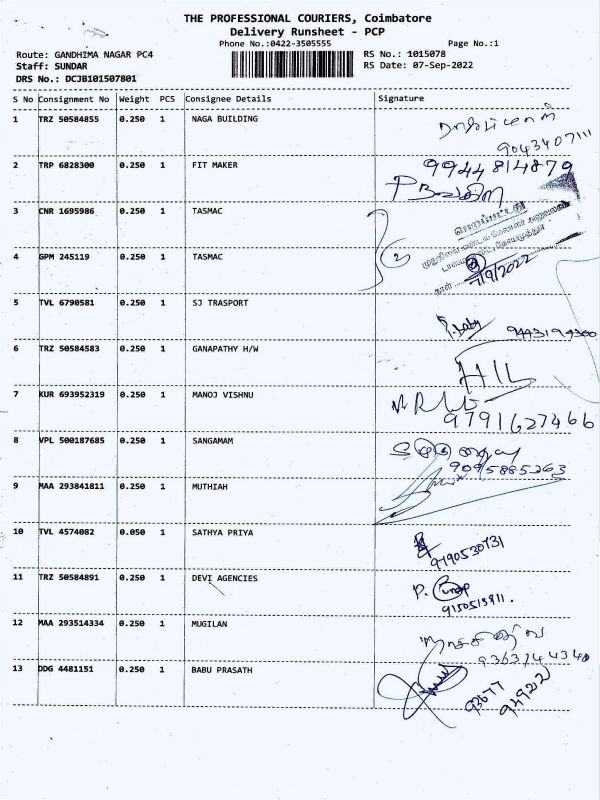 THE PROFESSIONAL COURIERS, Coimbatore
Delivery Runsheet - PCP
Phone No.:0422-3505555 Page No.:1
Route: GANDHIMA NAGAR PC4 RS No.: 1015078
Staff: SUNDAR RS Date: 07-Sep-2022
DRS No.: DCJB101507801
S No Consignment No Weight PCS Consignee Details Signature
1 TRZ 50584855 0.250 1 NAGA BUILDING
9043407111
2 TRP 6828300 0.250 1 FIT MAKER 9944814879
3 CNR 1695986 0.250 1 TASMAC
4 GPM 245119 0.250 1 TASMAC 2
7/9/2022
5 TVL 6790581 0.250 1 SJ TRASPORT 9443194300
6 TRZ 50584583 0.250 1 GANAPATHY H/W
7 KUR 693952319 0.250 1 MANOJ VISHNU
9791627466
8 VPL 500187685 0.250 1 SANGAMAM
9095885263
9 MAA 293841811 0.250 1 MUTHIAH
10 TVL 4574082 0.050 1 SATHYA PRIYA
9190530731
11 TRZ 50584891 0.250 1 DEVI AGENCIES
9150513911.
12 MAA 293514334 0.250 1 MUGILAN
9363144340
13 DDG 4481151 0.250 1 BABU PRASATH
93677